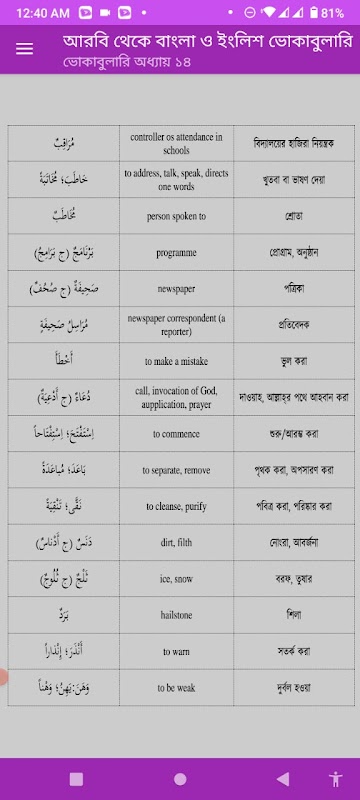 12:40 AM
81%
আরবি থেকে বাংলা ও ইংলিশ ভোকাবুলারি
ভোকাবুলারি অধ্যায় ১৪
مُرَاقِبٌ controller os attendance in বিদ্যালয়ের হাজিরা নিয়ন্ত্রক
schools
خَاطَبَ؛ مُخَاتَبَةٌ to address, talk, speak, directs খুতবা বা ভাষণ দেয়া
one words
مُخَاطَبٌ person spoken to শ্রোতা
بَرْنَامَجٌ (ج بَرَامِجُ) programme প্রোগ্রাম, অনুষ্ঠান
صَحِيفَةٌ (ج صُحُفٌ) newspaper পত্রিকা
مُرَاسِلُ صَحِيفَةٍ newspaper correspondent (a প্রতিবেদক
reporter)
أَخْطَأَ to make a mistake ভুল করা
دُعَاءٌ (ج أَدْعِيَةٌ) call, invocation of God, দাওয়াহ, আল্লাহ্‌র পথে আহবান করা
aupplication, prayer
اِسْتَفْتَحَ؛ اِسْتِفْتَاحاً to commence শুরু/আরম্ভ করা
بَاعَدَ؛ مُبَاعَدَةً to separate, remove পৃথক করা, অপসারণ করা
نَقَّى؛ تَنْقِيَةً to cleanse, purify পবিত্র করা, পরিষ্কার করা
دَنَسٌ (ج أَدْنَاسٌ) dirt, filth নোংরা, আবর্জনা
ثَلْجٌ (ج ثُلُوجٌ) ice, snow বরফ, তুষার
بَرَدٌ hailstone শিলা
أَنْذَرَ؛ إِنْذَاراً to warn সতর্ক করা
وَهَنَ:يَهِنُ؛ وَهْناً to be weak দুর্বল হওয়া